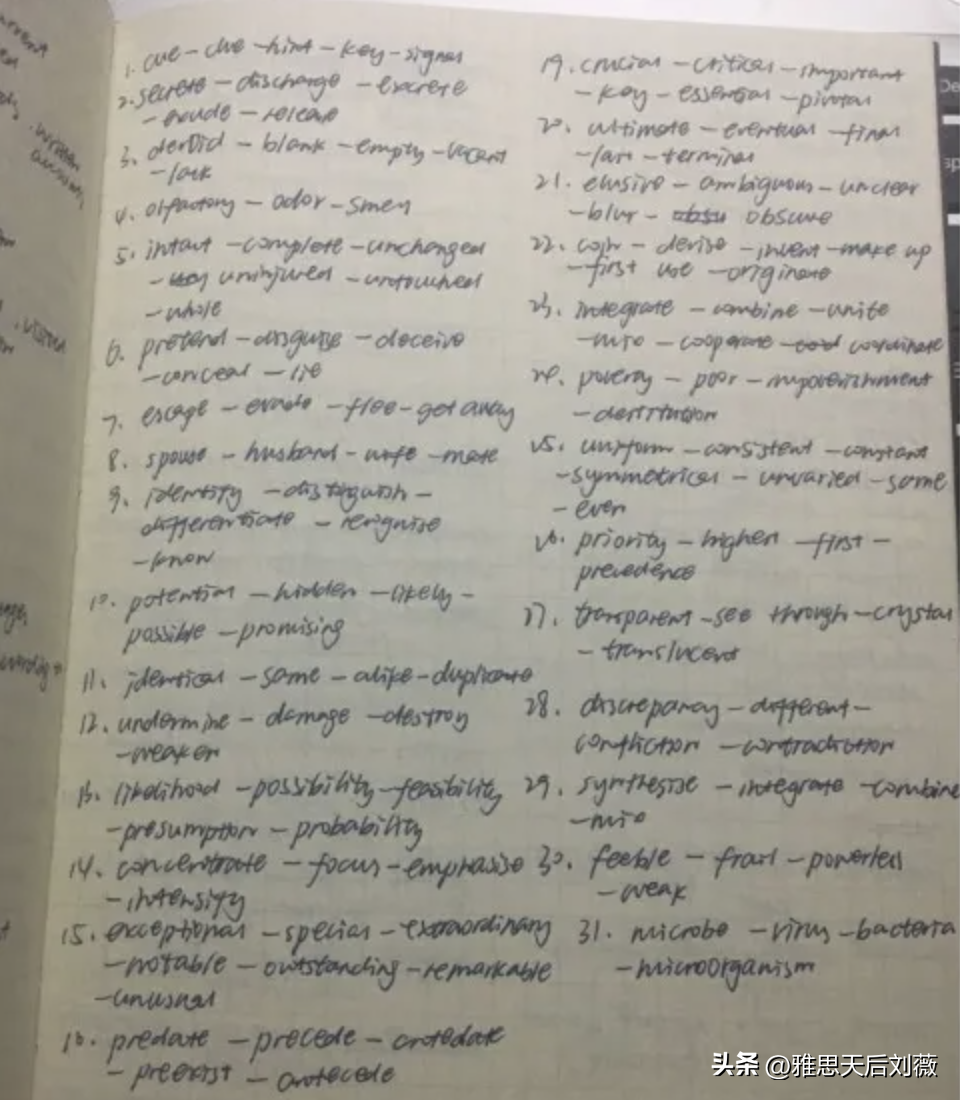 1. cue - clue - hint - key - signal
2. secrete - discharge - excrete
- exude - release
3. devoid - blank - empty - vacant
- lack
4. olfactory - odor - smell
5. intact - complete - unchanged
- uninjured - untouched
- whole
6. pretend - disguise - deceive
- conceal - lie
7. escape - evade - flee - get away
8. spouse - husband - wife - mate
9. identify - distinguish -
differentiate - recognise
- know
10. potential - hidden - likely -
possible - promising
11. identical - same - alike - duplicate
12. undermine - damage - destroy
- weaken
13. likelihood - possibility - feasibility
- presumption - probability
14. concentrate - focus - emphasise
- intensify
15. exceptional - special - extraordinary
- notable - outstanding - remarkable
- unusual
16. predate - precede - antedate
- preexist - antecede
19. crucial - critical - important
- key - essential - pivotal
20. ultimate - eventual - final
- last - terminal
21. elusive - ambiguous - unclear
- blur - obscure
22. coin - devise - invent - make up
- first use - originate
23. integrate - combine - unite
- mix - cooperate - coordinate
24. poverty - poor - impoverishment
- destitution
25. uniform - consistent - constant
- symmetrical - unvaried - same
- even
26. priority - highest - first -
precedence
27. transparent - see through - crystal
- translucent
28. discrepancy - different -
confliction - contradiction
29. synthesise - integrate - combine
- mix
30. feeble - frail - powerless
- weak
31. microbe - virus - bacteria
- microorganism
头条 @雅思天后刘薇